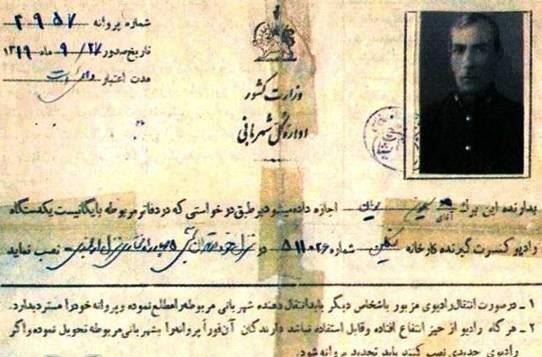 شماره پروانه ۲۹۵۷
تاریخ صدور ۲۷ / ۹ ماه ۱۳۱۹
مدت اعتبار
وزارت کشور
اداره کل شهربانی
بدارنده این برگ آقای اجازه داده میشود بر طبق درخواستی که در دفاتر مربوطه بایگانیست یکدستگاه
رادیو کنسرت گیرنده کارخانه شماره ۵۱۱۰۲۶ در نصب نماید
۱ - در صورت انتقال رادیوی مزبور باشخاص دیگر باید انتقال دهنده شهربانی مربوطه را مطلع نموده و پروانه خود را مسترد بدارد.
۲ - هر گاه رادیو از حیز انتفاع افتاده و قابل استفاده نباشد دارندگان آن فوراً پروانه را بشهربانی مربوطه تحویل نموده و اگر
رادیوی جدیدی نصب کنند باید تجدید پروانه شود.